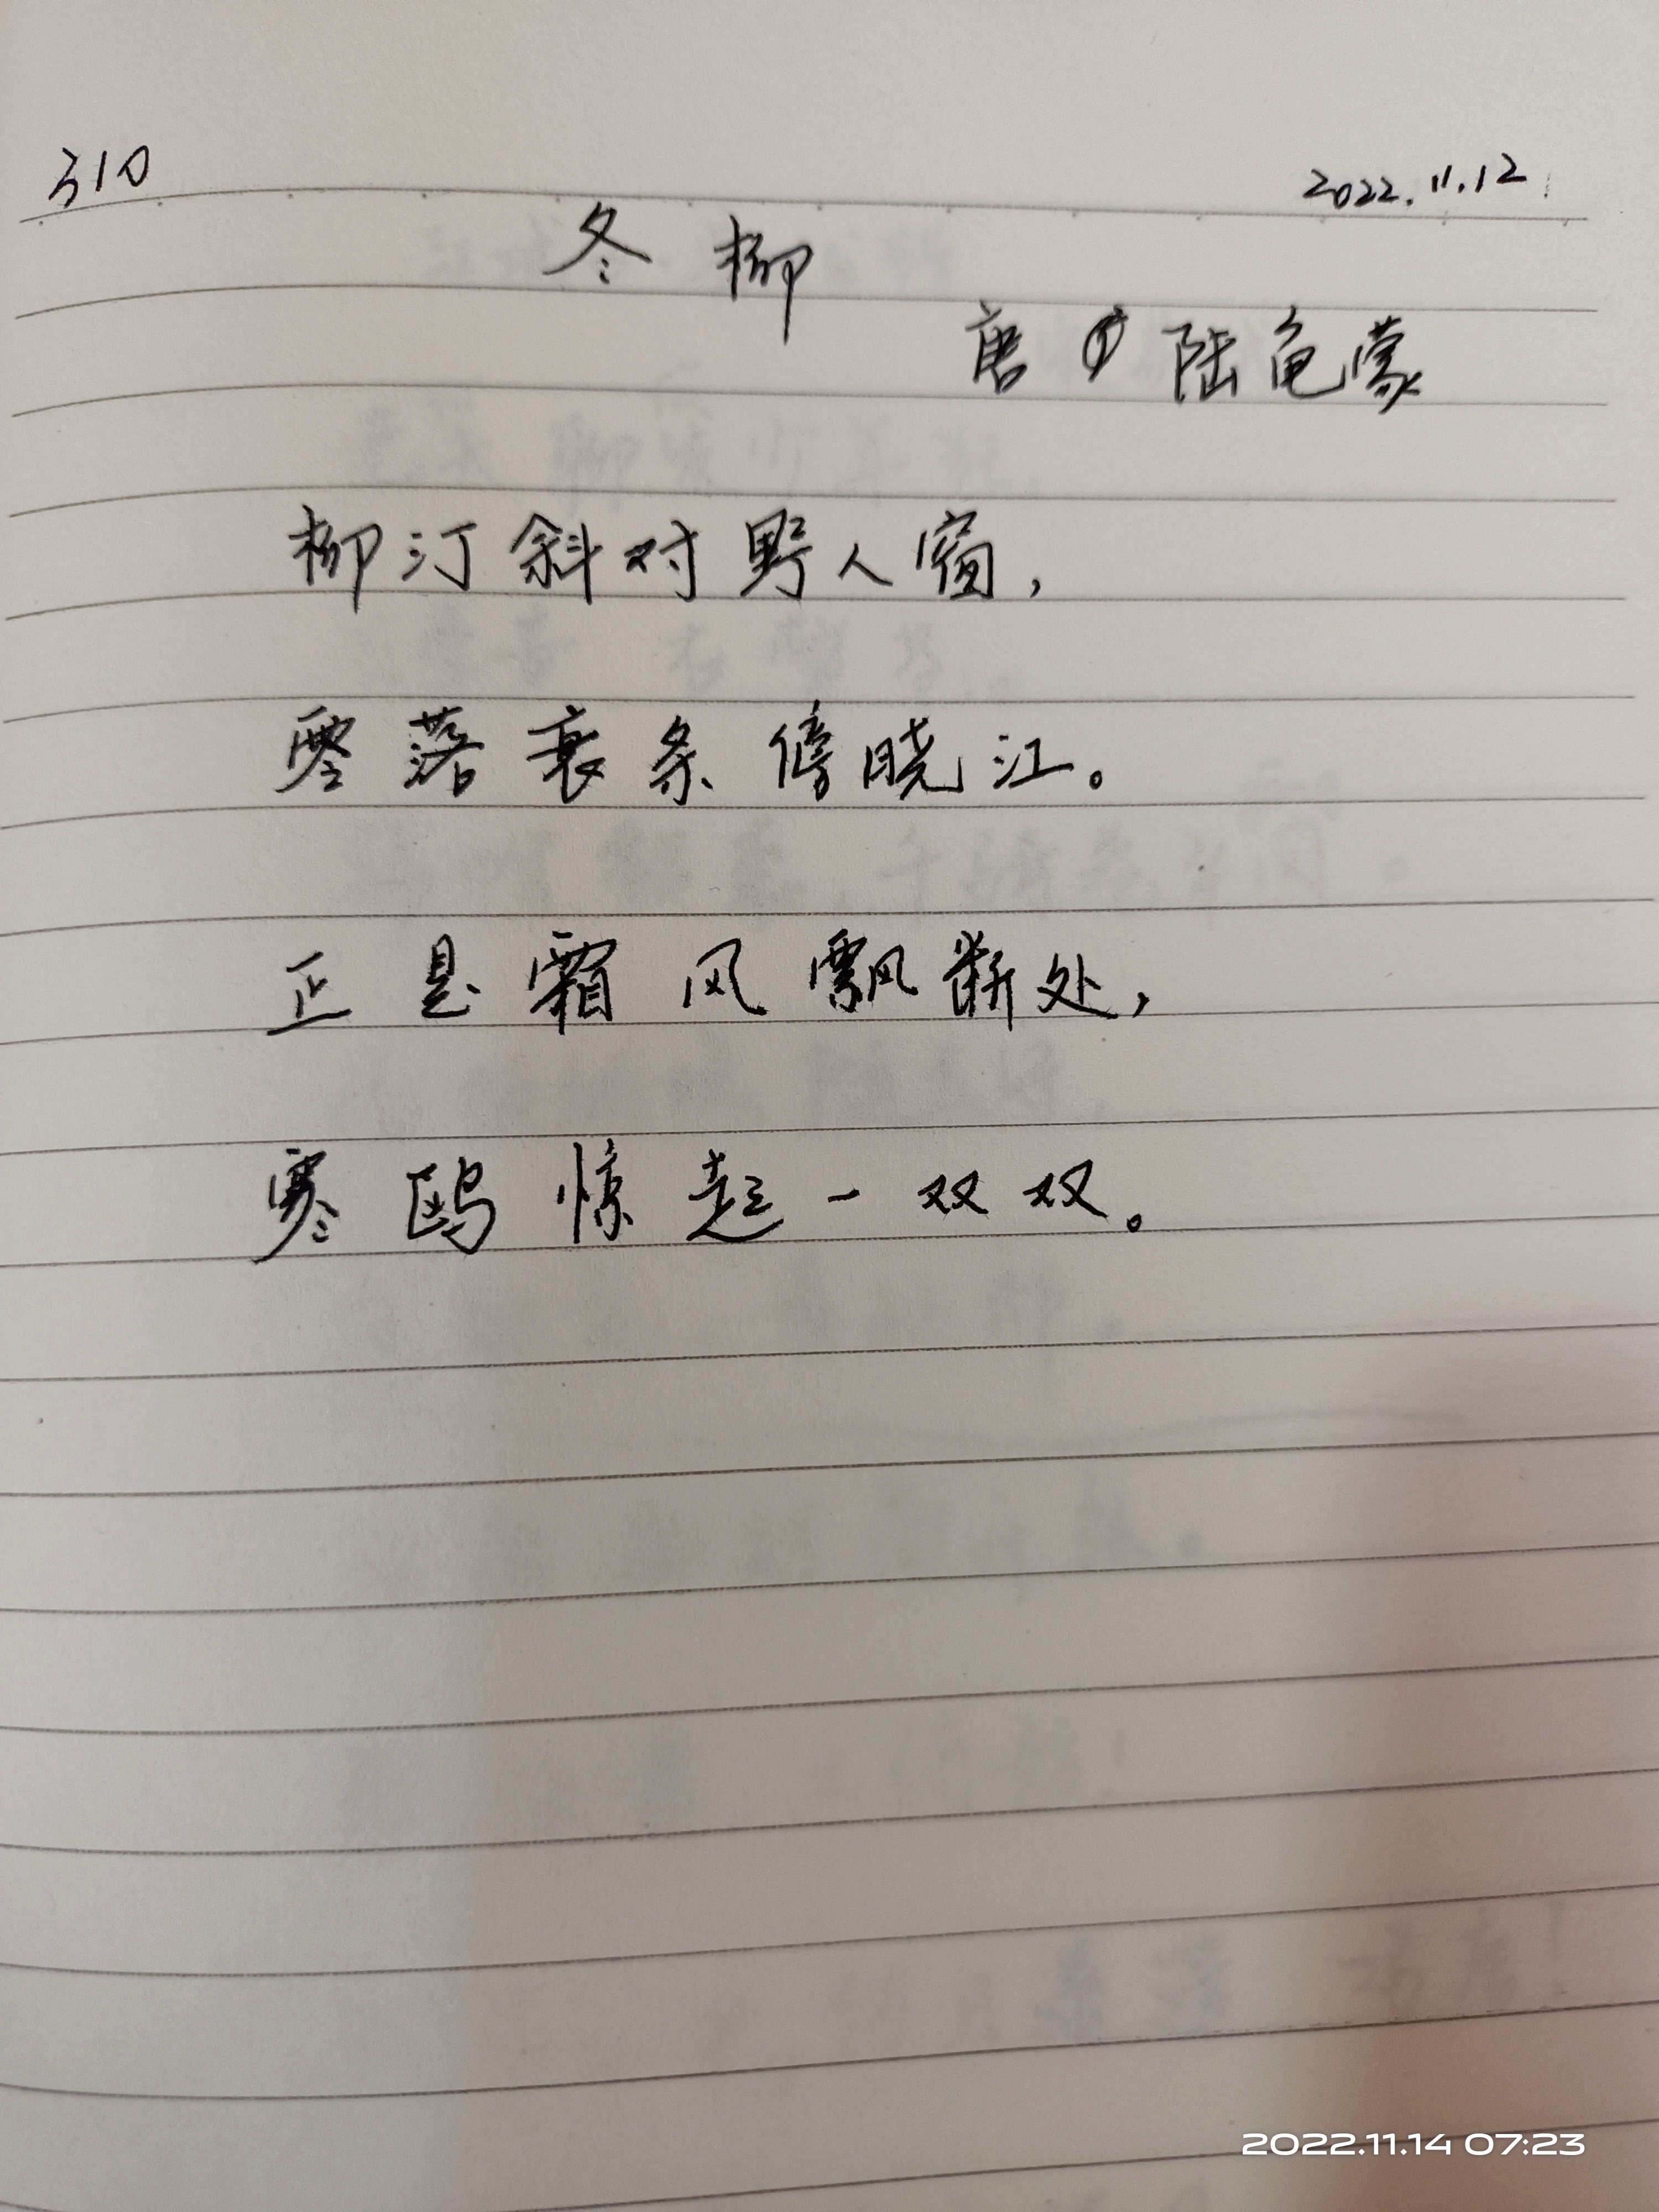 310 2022.11.12
冬柳
唐 陆龟蒙
柳汀斜对野人窗，
零落衰条傍晓江。
正是霜风飘断处，
寒鸥惊起一双双。
2022.11.14 07:23